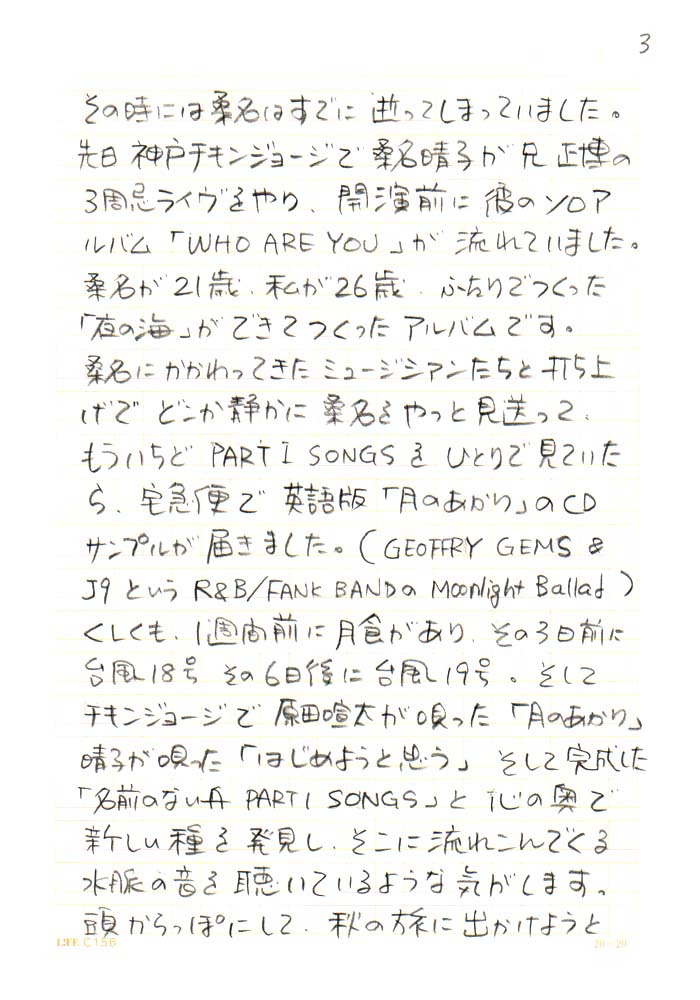 3
その時には桑名はすでに逝ってしまっていました。
先日 神戸チキンジョージで 桑名晴子が兄 正博の
3周忌ライヴをやり、開演前に彼のソロア
ルバム「WHO ARE YOU」が流れていました。
桑名が21歳、私が26歳、ふたりでつくった
「夜の海」ができてつくったアルバムです。
桑名にかかわってきたミュージシアンたちと打ち上
げで どこか静かに桑名をやっと見送って、
もういちど PART I SONGS を ひとりで見ていた
ら、宅急便で 英語版「月のあかり」のCD
サンプルが届きました。(GEOFFRY GEMS &
J9 という R&B/FANK BANDの Moonlight Ballad)
くしくも、1週間前に月食があり、その3日前に
台風18号 その6日後に台風19号。そして
チキンジョージで 原田喧太が唄った「月のあかり」
晴子が唄った「はじめようと思う」 そして完成した
「名前のない舟 PART1 SONGS」と 心の奥で
新しい種を発見し、そこに流れこんでくる
水脈の音を聴いているような気がします。
頭からっぽにして、秋の旅に出かけようと
LIFE C156
20×20